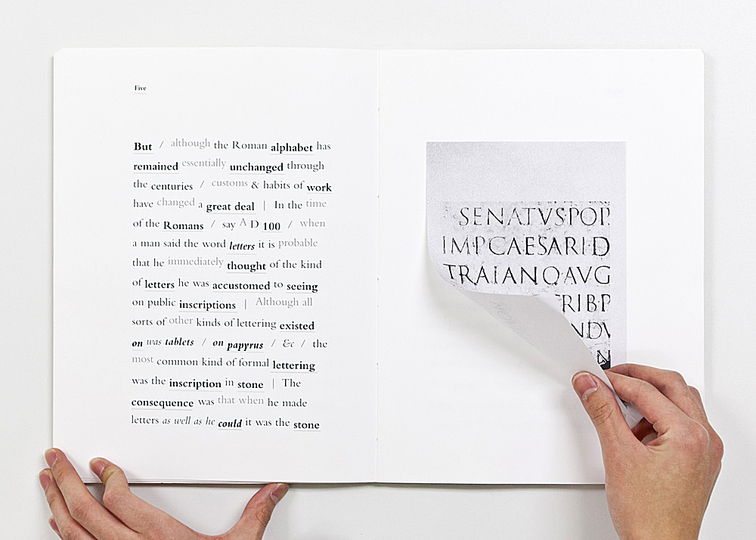 Five
But / although the Roman alphabet has
remained essentially unchanged through
the centuries / customs & habits of work
have changed a great deal | In the time
of the Romans / say A D 100 / when
a man said the word letters it is probable
that he immediately thought of the kind
of letters he was accustomed to seeing
on public inscriptions | Although all
sorts of other kinds of lettering existed
on was tablets / on papyrus / &c / the
most common kind of formal lettering
was the inscription in stone | The
consequence was that when he made
letters as well as he could it was the stone
SENATVSPOP
IMPCAESARID
TRAIANOAVG
RIBP
NDV
N